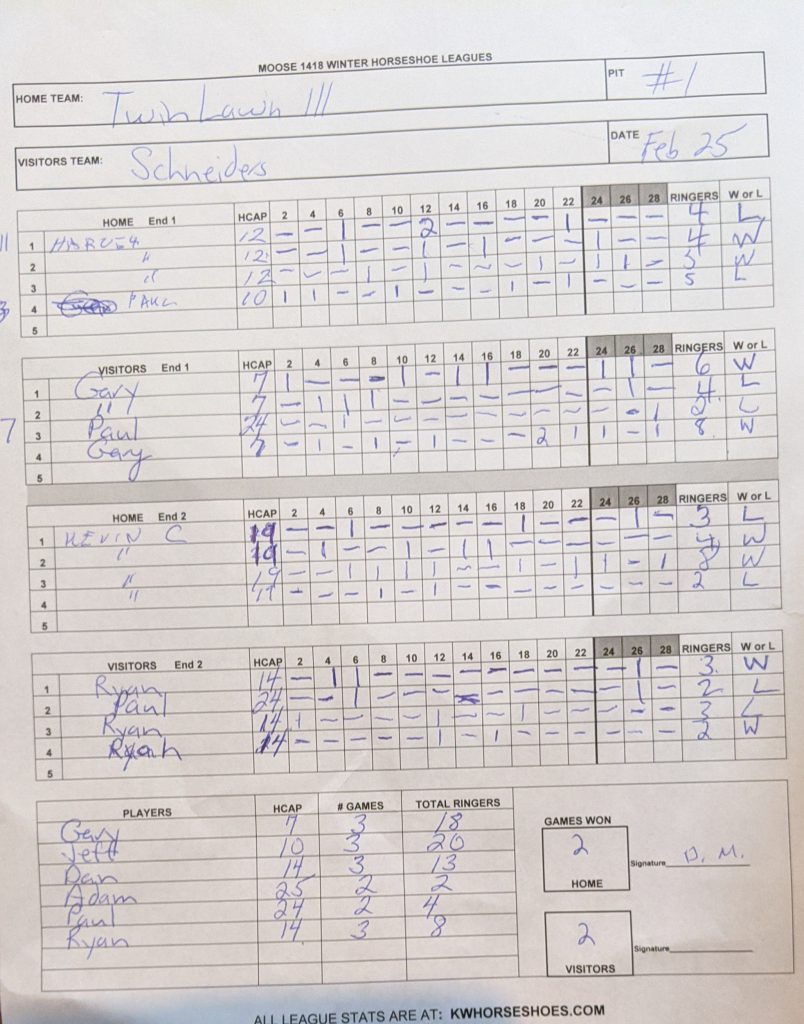 MOOSE 1418 WINTER HORSESHOE LEAGUES
HOME TEAM: Twin Lawn III PIT #1
VISITORS TEAM: Schneiders DATE Feb 25
HOME End 1 HCAP 2 4 6 8 10 12 14 16 18 20 22 24 26 28 RINGERS W or L
1 HARVEY 12 - - 1 - - 2 - - - - 1 - - - 4 L
2 " 12 - - 1 - - 1 - 1 - - - 1 - - 4 W
3 " 12 - - - 1 - 1 - - - 1 - 1 1 - 5 W
4 PAUL 10 1 1 - - 1 - - - 1 - 1 - - - 5 L
5
VISITORS End 1 HCAP 2 4 6 8 10 12 14 16 18 20 22 24 26 28 RINGERS W or L
1 Gary 7 1 - - - 1 - 1 1 - - - 1 1 - 6 W
2 " 7 - 1 1 1 - - - - - - - - 1 - 4 L
3 Paul 24 - - 1 - - - - - - - - - - 1 2 L
4 Gary 7 - 1 - 1 - 1 - - - 2 1 1 - 1 8 W
5
HOME End 2 HCAP 2 4 6 8 10 12 14 16 18 20 22 24 26 28 RINGERS W or L
1 KEVIN C 19 - - 1 - - - - - 1 - - - 1 - 3 L
2 " 19 - 1 - - 1 - 1 1 - - - - - - 4 W
3 " 19 - - 1 1 1 1 - - 1 - 1 1 - 1 8 W
4 " 19 - - - 1 - 1 - - - - - - - - 2 L
5
VISITORS End 2 HCAP 2 4 6 8 10 12 14 16 18 20 22 24 26 28 RINGERS W or L
1 Ryan 14 - 1 1 - - - - - - - - - 1 - 3 W
2 Paul 24 - - 1 - - - - - - - - - 1 - 2 L
3 Ryan 14 1 - - - - 1 - - 1 - - - - - 3 L
4 Ryan 14 - - - - - 1 - 1 - - - - - - 2 W
5
PLAYERS HCAP # GAMES TOTAL RINGERS
Gary 7 3 18
Jeff 10 3 20
Dan 14 3 13
Adam 25 2 2
Paul 24 2 4
Ryan 14 3 8
GAMES WON
2
HOME
Signature D. M.
2
VISITORS
Signature
ALL LEAGUE STATS ARE AT: KWHORSESHOES.COM